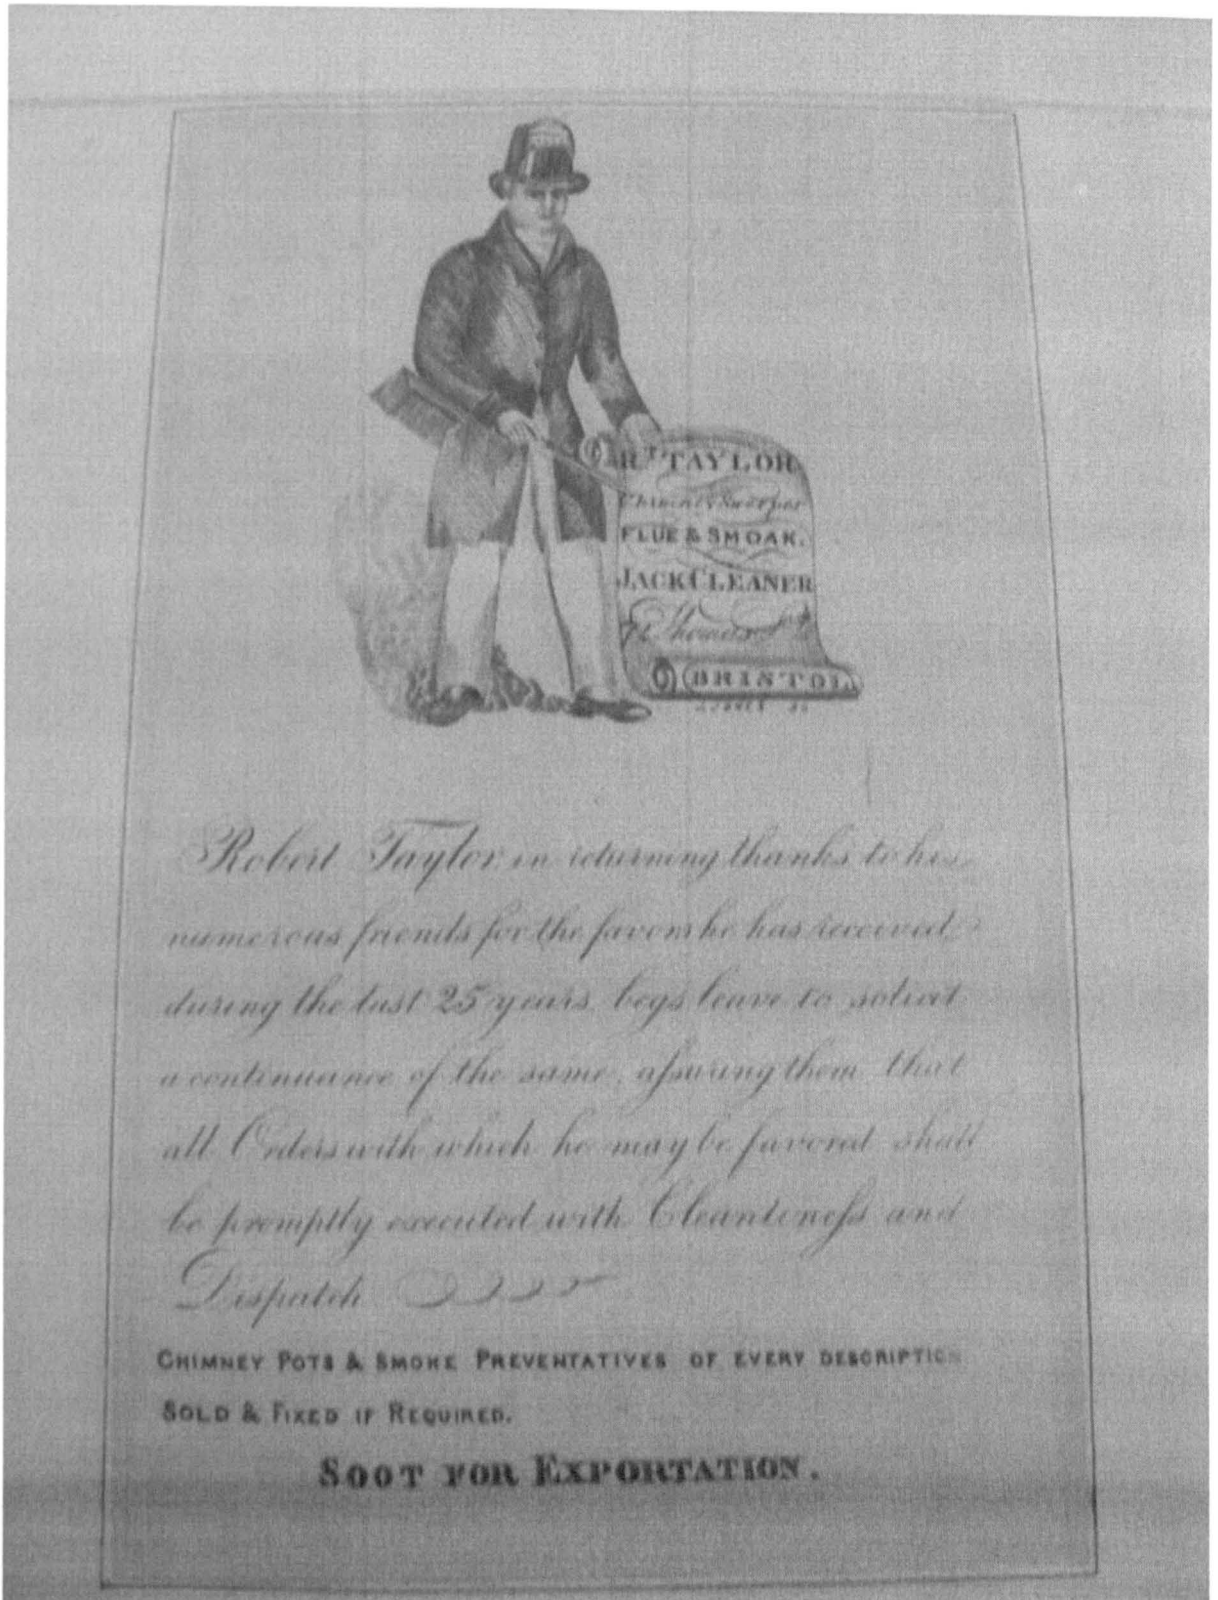 Rt TAYLOR
Chimney Sweeper
FLUE & SMOAK.
JACK CLEANER
Thomas St
BRISTOL
Robert Taylor in returning thanks to his
numerous friends for the favors he has received
during the last 25 years, begs leave to solicit
a continuance of the same, aſsuring them that
all Orders with which he may be favored shall
be promptly executed with Cleanlineſs and
Dispatch
CHIMNEY POTS & SMOKE PREVENTATIVES OF EVERY DESCRIPTION
SOLD & FIXED IF REQUIRED.
SOOT FOR EXPORTATION.